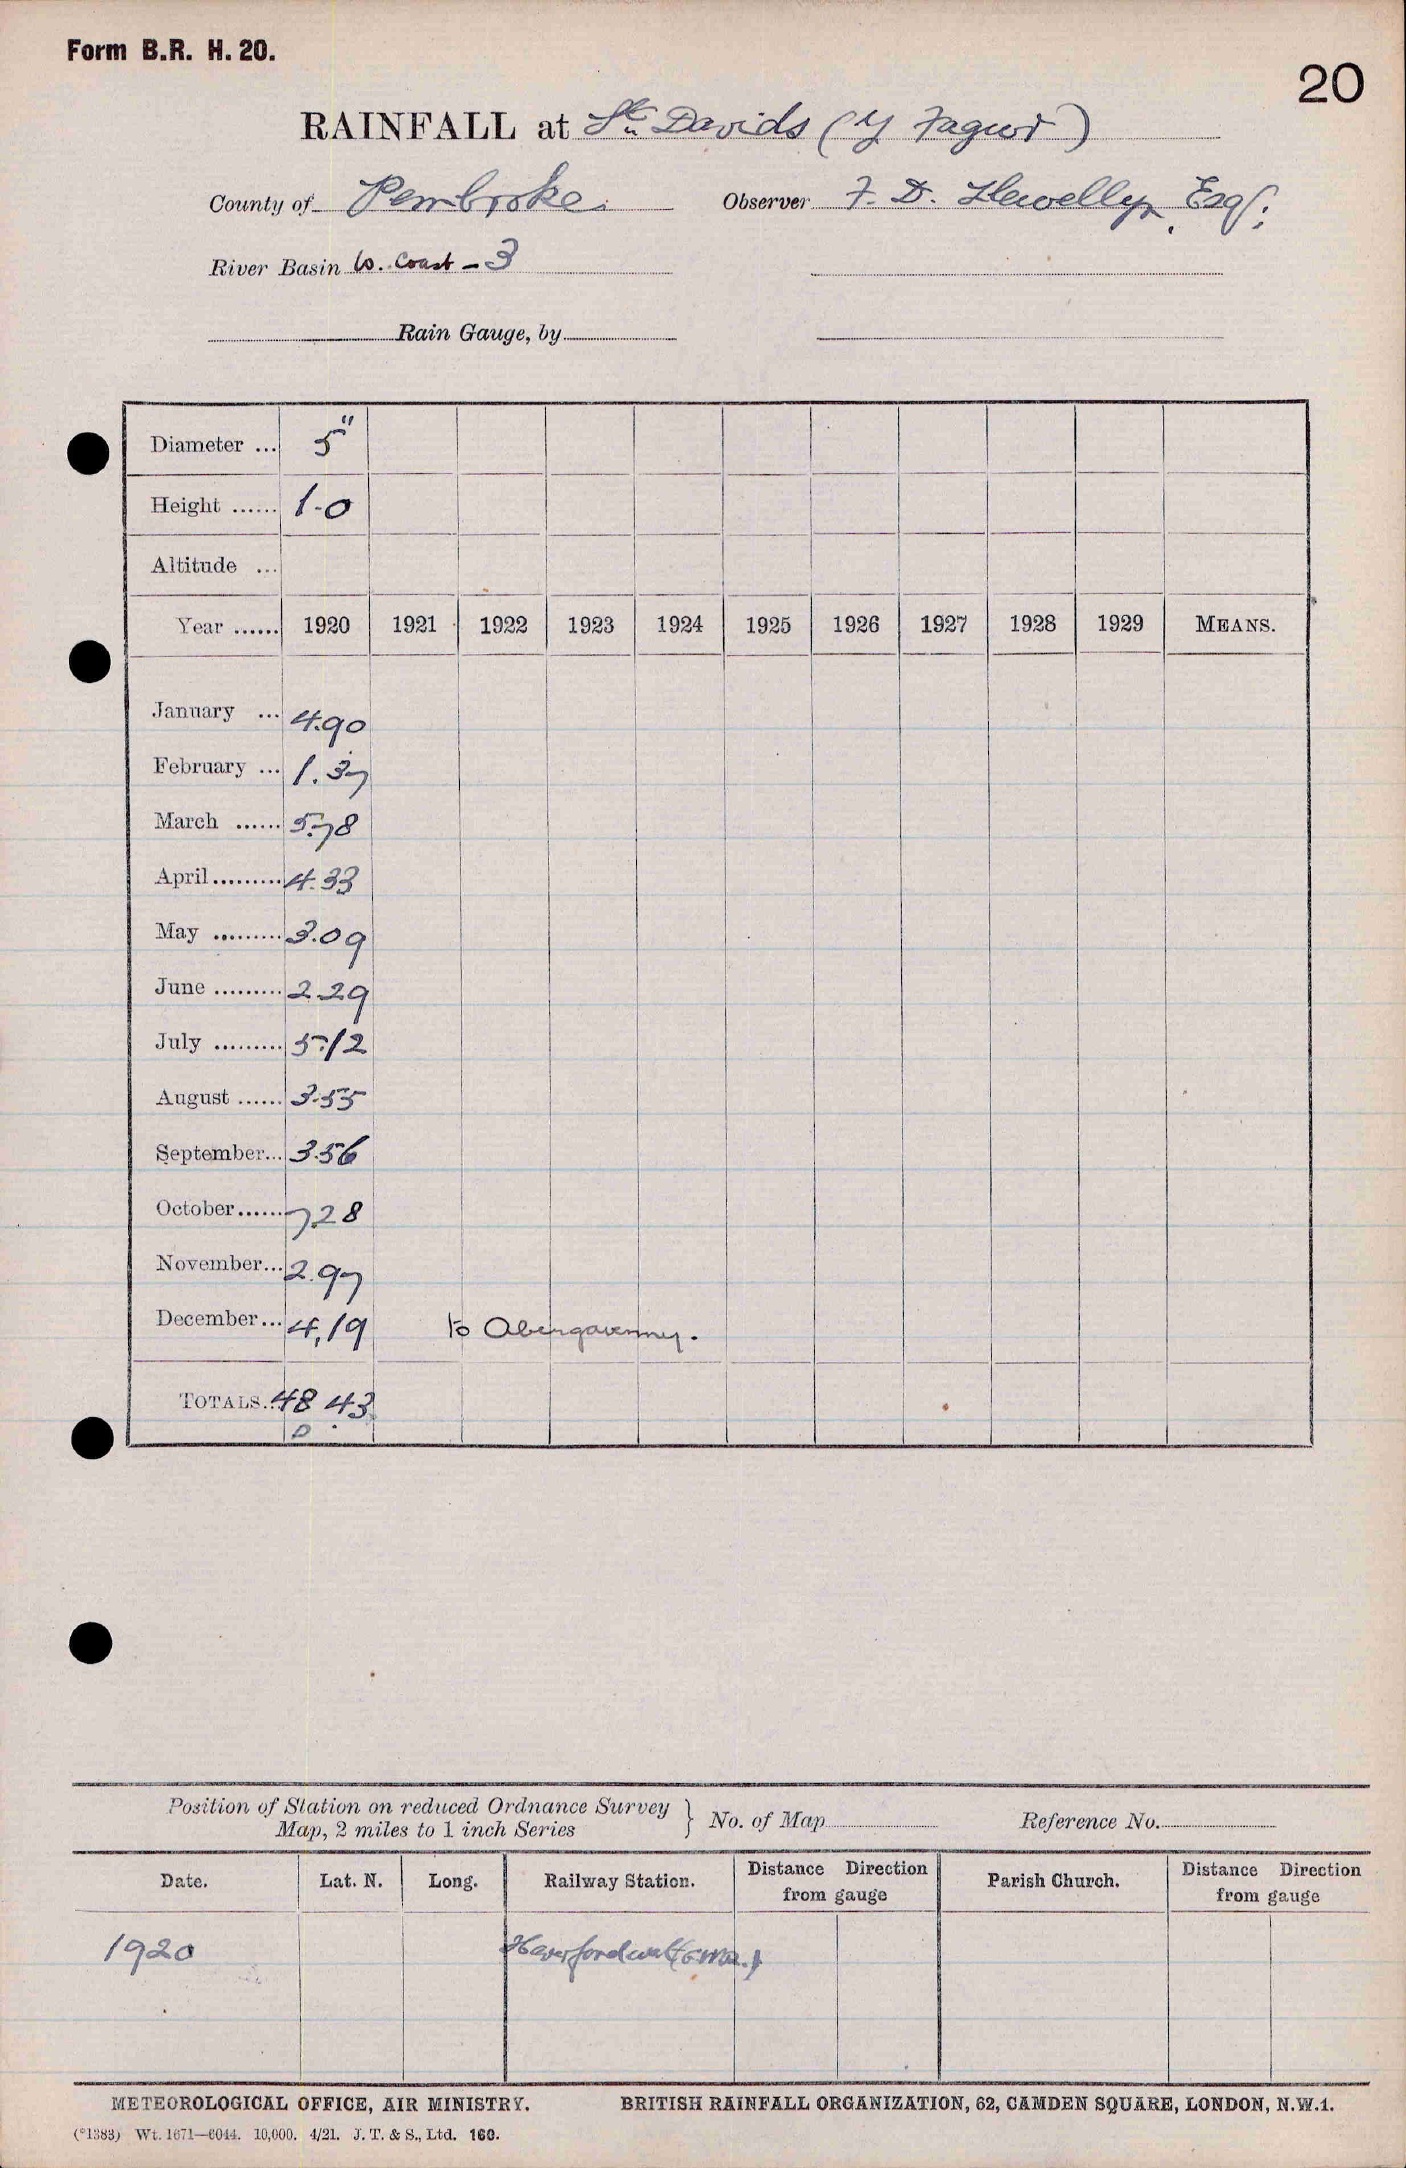 Form B.R. H. 20.
20
RAINFALL at St. Davids (Y Fagwr)
County of Pembroke. Observer F. D. Llewellyn, Esq.
River Basin W. Coast - 3
Rain Gauge, by
Diameter ... 5"
Height ...... 1-0
Altitude ...
Year ...... 1920 1921 1922 1923 1924 1925 1926 1927 1928 1929 MEANS.
January ... 4.90
February ... 1.37
March ...... 5.78
April ......... 4.33
May ......... 3.09
June ......... 2.29
July ......... 5.12
August ...... 3.55
September... 3.56
October ...... 7.28
November... 2.97
December... 4.19 to Abergavenny.
TOTALS.. 48 43
Position of Station on reduced Ordnance Survey
Map, 2 miles to 1 inch Series } No. of Map Reference No.
Date. Lat. N. Long. Railway Station. Distance Direction from gauge Parish Church. Distance Direction from gauge
1920 Haverfordwest
METEOROLOGICAL OFFICE, AIR MINISTRY. BRITISH RAINFALL ORGANIZATION, 62, CAMDEN SQUARE, LONDON, N.W.1.
(*1383) Wt. 1671—6044. 10,000. 4/21. J. T. & S., Ltd. 160.